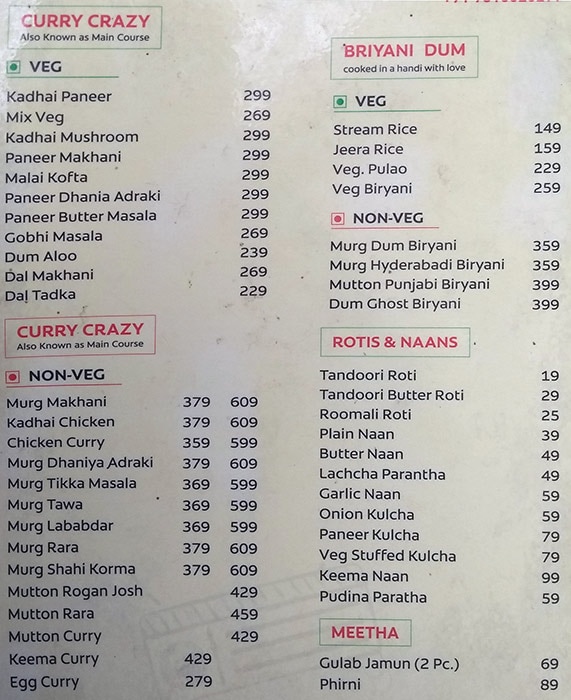 CURRY CRAZY
Also Known as Main Course
VEG
Kadhai Paneer 299
Mix Veg 269
Kadhai Mushroom 299
Paneer Makhani 299
Malai Kofta 299
Paneer Dhania Adraki 299
Paneer Butter Masala 299
Gobhi Masala 269
Dum Aloo 239
Dal Makhani 269
Dal Tadka 229
CURRY CRAZY
Also Known as Main Course
NON-VEG
Murg Makhani 379 609
Kadhai Chicken 379 609
Chicken Curry 359 599
Murg Dhaniya Adraki 379 609
Murg Tikka Masala 369 599
Murg Tawa 369 599
Murg Lababdar 369 599
Murg Rara 379 609
Murg Shahi Korma 379 609
Mutton Rogan Josh 429
Mutton Rara 459
Mutton Curry 429
Keema Curry 429
Egg Curry 279
BRIYANI DUM
cooked in a handi with love
VEG
Stream Rice 149
Jeera Rice 159
Veg. Pulao 229
Veg Biryani 259
NON-VEG
Murg Dum Biryani 359
Murg Hyderabadi Biryani 359
Mutton Punjabi Biryani 399
Dum Ghost Biryani 399
ROTIS & NAANS
Tandoori Roti 19
Tandoori Butter Roti 29
Roomali Roti 25
Plain Naan 39
Butter Naan 49
Lachcha Parantha 49
Garlic Naan 59
Onion Kulcha 59
Paneer Kulcha 79
Veg Stuffed Kulcha 79
Keema Naan 99
Pudina Paratha 59
MEETHA
Gulab Jamun (2 Pc.) 69
Phirni 89